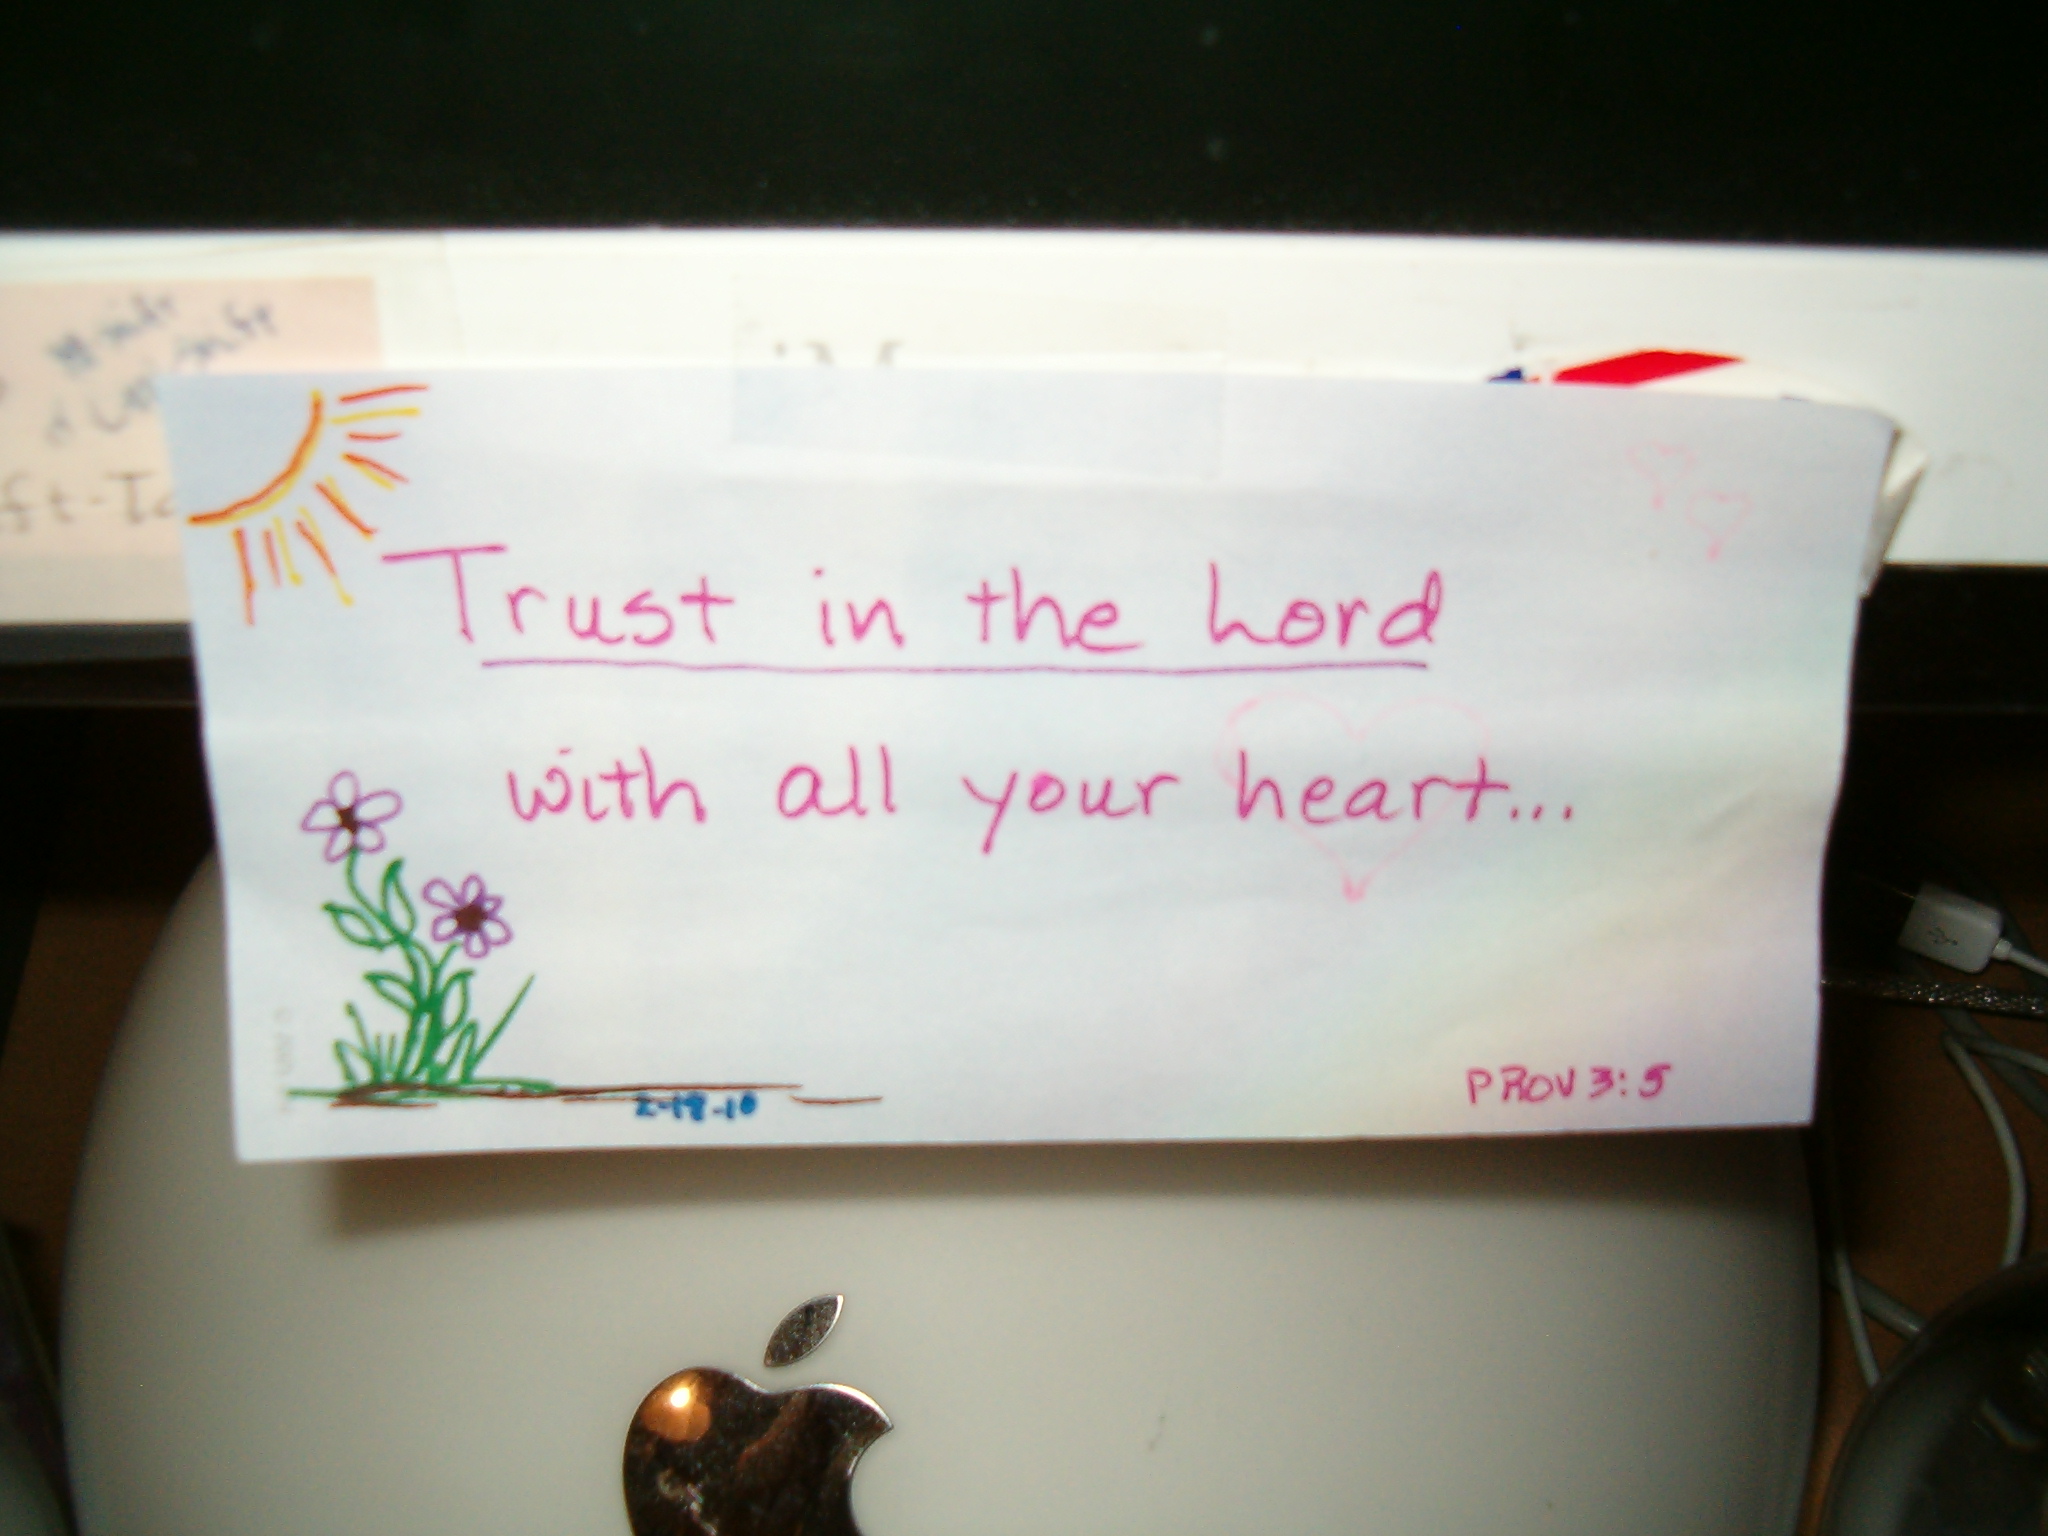 Trust in the Lord
with all your heart...
2-18-10
PROV 3:5